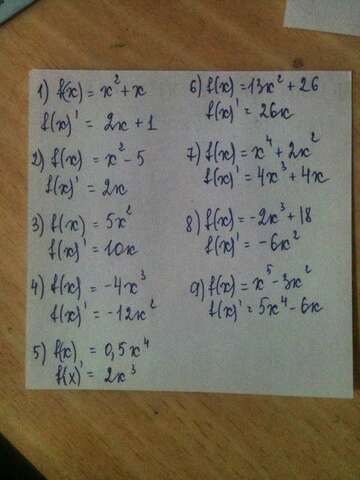 1) f(x) = x² + x
f(x)' = 2x + 1
2) f(x) = x² - 5
f(x)' = 2x
3) f(x) = 5x²
f(x)' = 10x
4) f(x) = -4x³
f(x)' = -12x²
5) f(x) = 0,5x⁴
f(x)' = 2x³
6) f(x) = 13x² + 26
f(x)' = 26x
7) f(x) = x⁴ + 2x²
f(x)' = 4x³ + 4x
8) f(x) = -2x³ + 18
f(x)' = -6x²
9) f(x) = x⁵ - 3x²
f(x)' = 5x⁴ - 6x